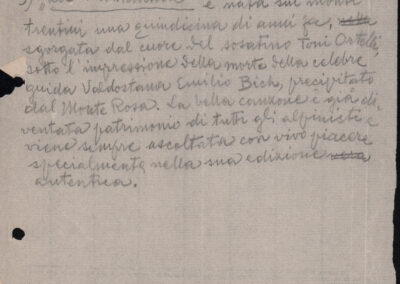 è nata sui monti
trentini una quindicina di anni fa,
sgorgata dal cuore del sosatino Toni Ortelli,
sotto l'impressione della morte della celebre
guida Valdostana Emilio Bich, precipitato
dal Monte Rosa. La bella canzone è già di-
ventata patrimonio di tutti gli alpinisti e
viene sempre ascoltata con vivo piacere
specialmente nella sua edizione
autentica.